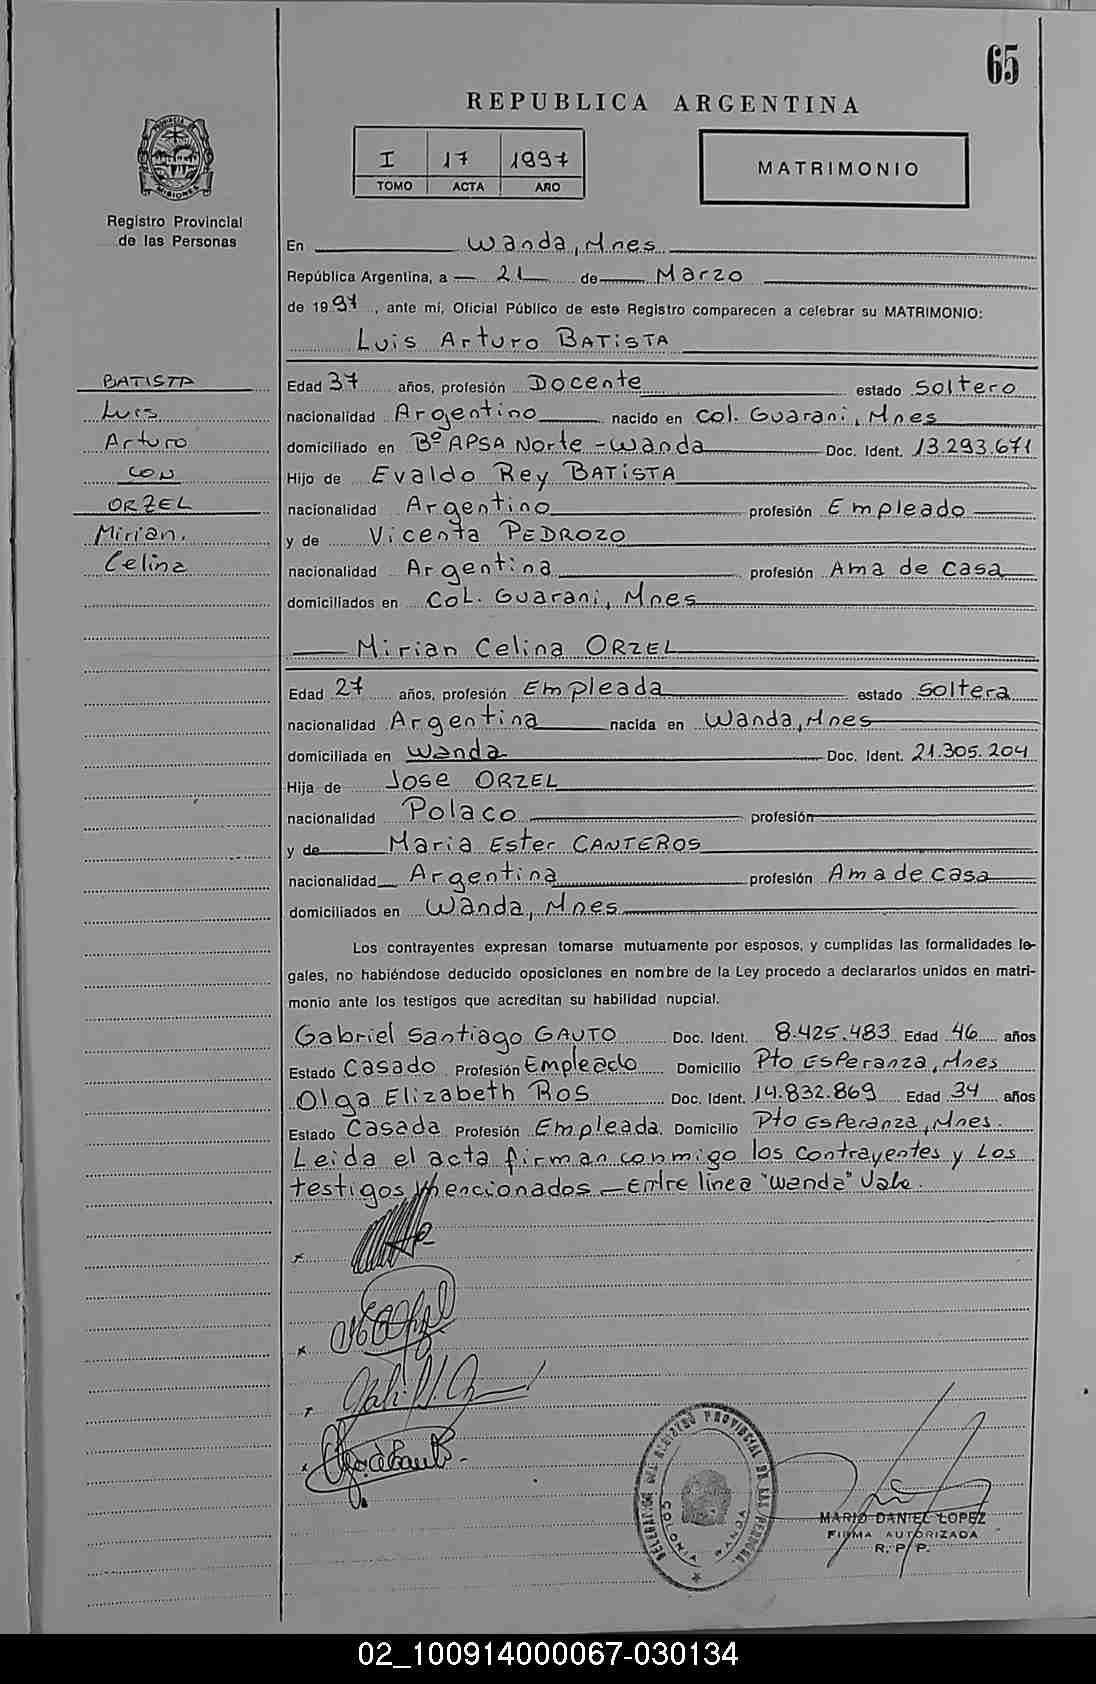 65
REPUBLICA ARGENTINA
I 17 1997
TOMO ACTA AÑO
MATRIMONIO
PROVINCIA DE MISIONES
Registro Provincial
de las Personas
En Wanda, Mnes
República Argentina, a 21 de Marzo
de 1997, ante mí, Oficial Público de este Registro comparecen a celebrar su MATRIMONIO:
Luis Arturo BATISTA
BATISTA
Luis
Arturo
CON
ORZEL
Mirian.
Celina
Edad 37 años, profesión Docente estado Soltero
nacionalidad Argentino nacido en Col. Guarani, Mnes
domiciliado en Bº APSA Norte - Wanda Doc. Ident. 13.293.671
Hijo de Evaldo Rey BATISTA
nacionalidad Argentino profesión Empleado
y de Vicenta PEDROZO
nacionalidad Argentina profesión Ama de casa
domiciliados en Col. Guarani, Mnes
Mirian Celina ORZEL
Edad 27 años, profesión Empleada estado Soltera
nacionalidad Argentina nacida en Wanda, Mnes
domiciliada en Wanda Doc. Ident. 21.305.204
Hija de Jose ORZEL
nacionalidad Polaco profesión
y de Maria Ester CANTEROS
nacionalidad Argentina profesión Ama de casa
domiciliados en Wanda, Mnes
Los contrayentes expresan tomarse mutuamente por esposos, y cumplidas las formalidades le-
gales, no habiéndose deducido oposiciones en nombre de la Ley procedo a declararlos unidos en matri-
monio ante los testigos que acreditan su habilidad nupcial.
Gabriel Santiago GAUTO Doc. Ident. 8.425.483 Edad 46 años
Estado Casado Profesión Empleado Domicilio Pto Esperanza, Mnes
Olga Elizabeth ROS Doc. Ident. 14.832.869 Edad 34 años
Estado Casada Profesión Empleada. Domicilio Pto Esperanza, Mnes.
Leida el acta firman conmigo los contrayentes y Los
testigos mencionados - Entre linea "Wanda" Vale.
DELEGACION DEL REGISTRO PROVINCIAL DE LAS PERSONAS
COLONIA WANDA
MARIO DANIEL LOPEZ
FIRMA AUTORIZADA
R. P. P.
02_100914000067-030134